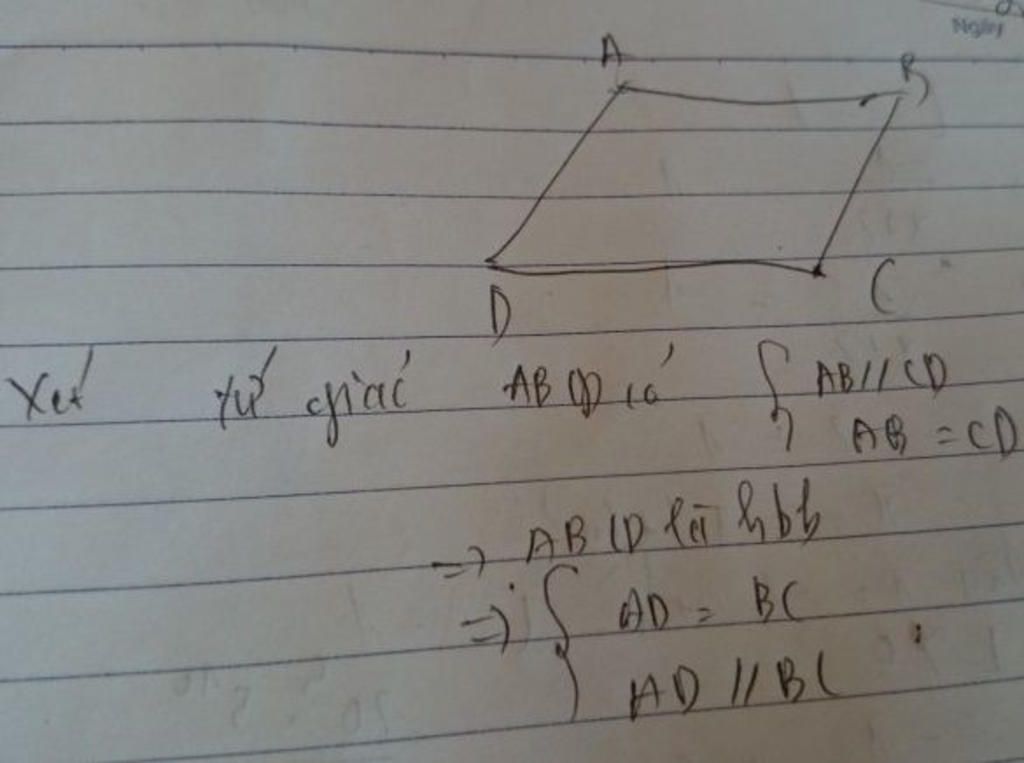 Ngày
A
B
D
C
Xét tứ giác ABCD có { AB // CD
AB = CD
=> ABCD là hbh
=> { AD = BC
AD // BC